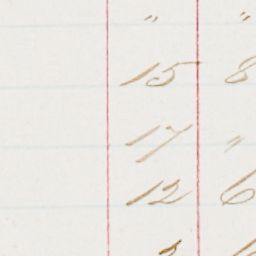 " "
15 8
17 "
12 6